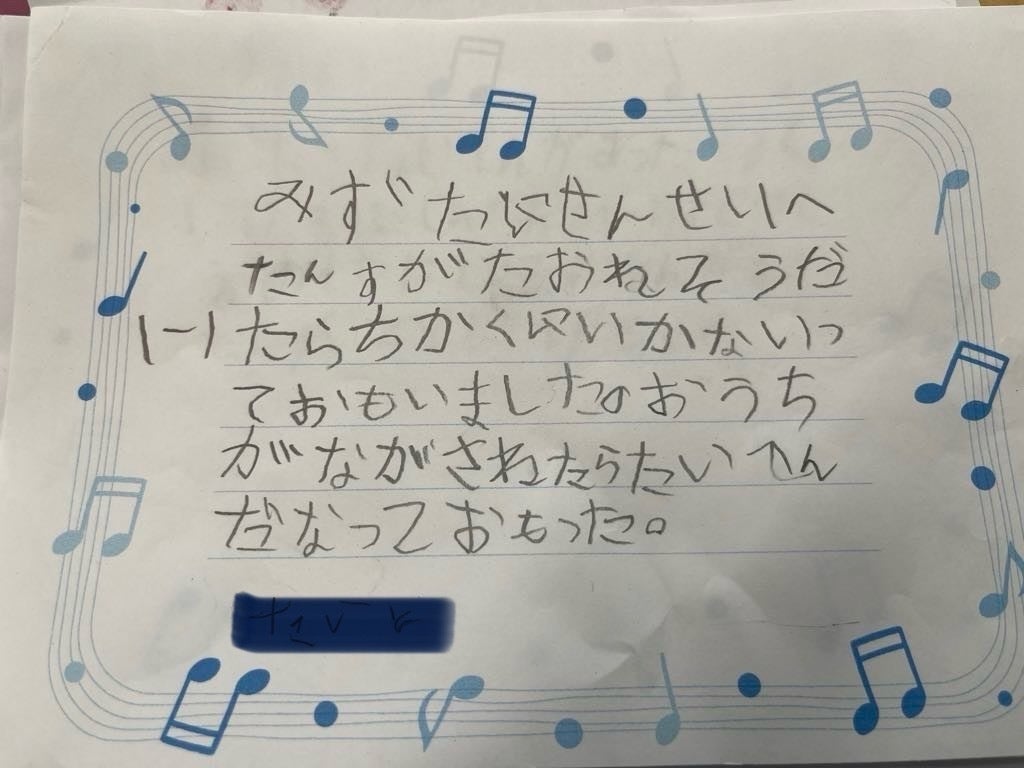 みずたにせんせいへ
たんすがたおれそうだ
たらちかくにいかないっ
ておもいました。おうち
がながされたらたいへん
だなっておもった。